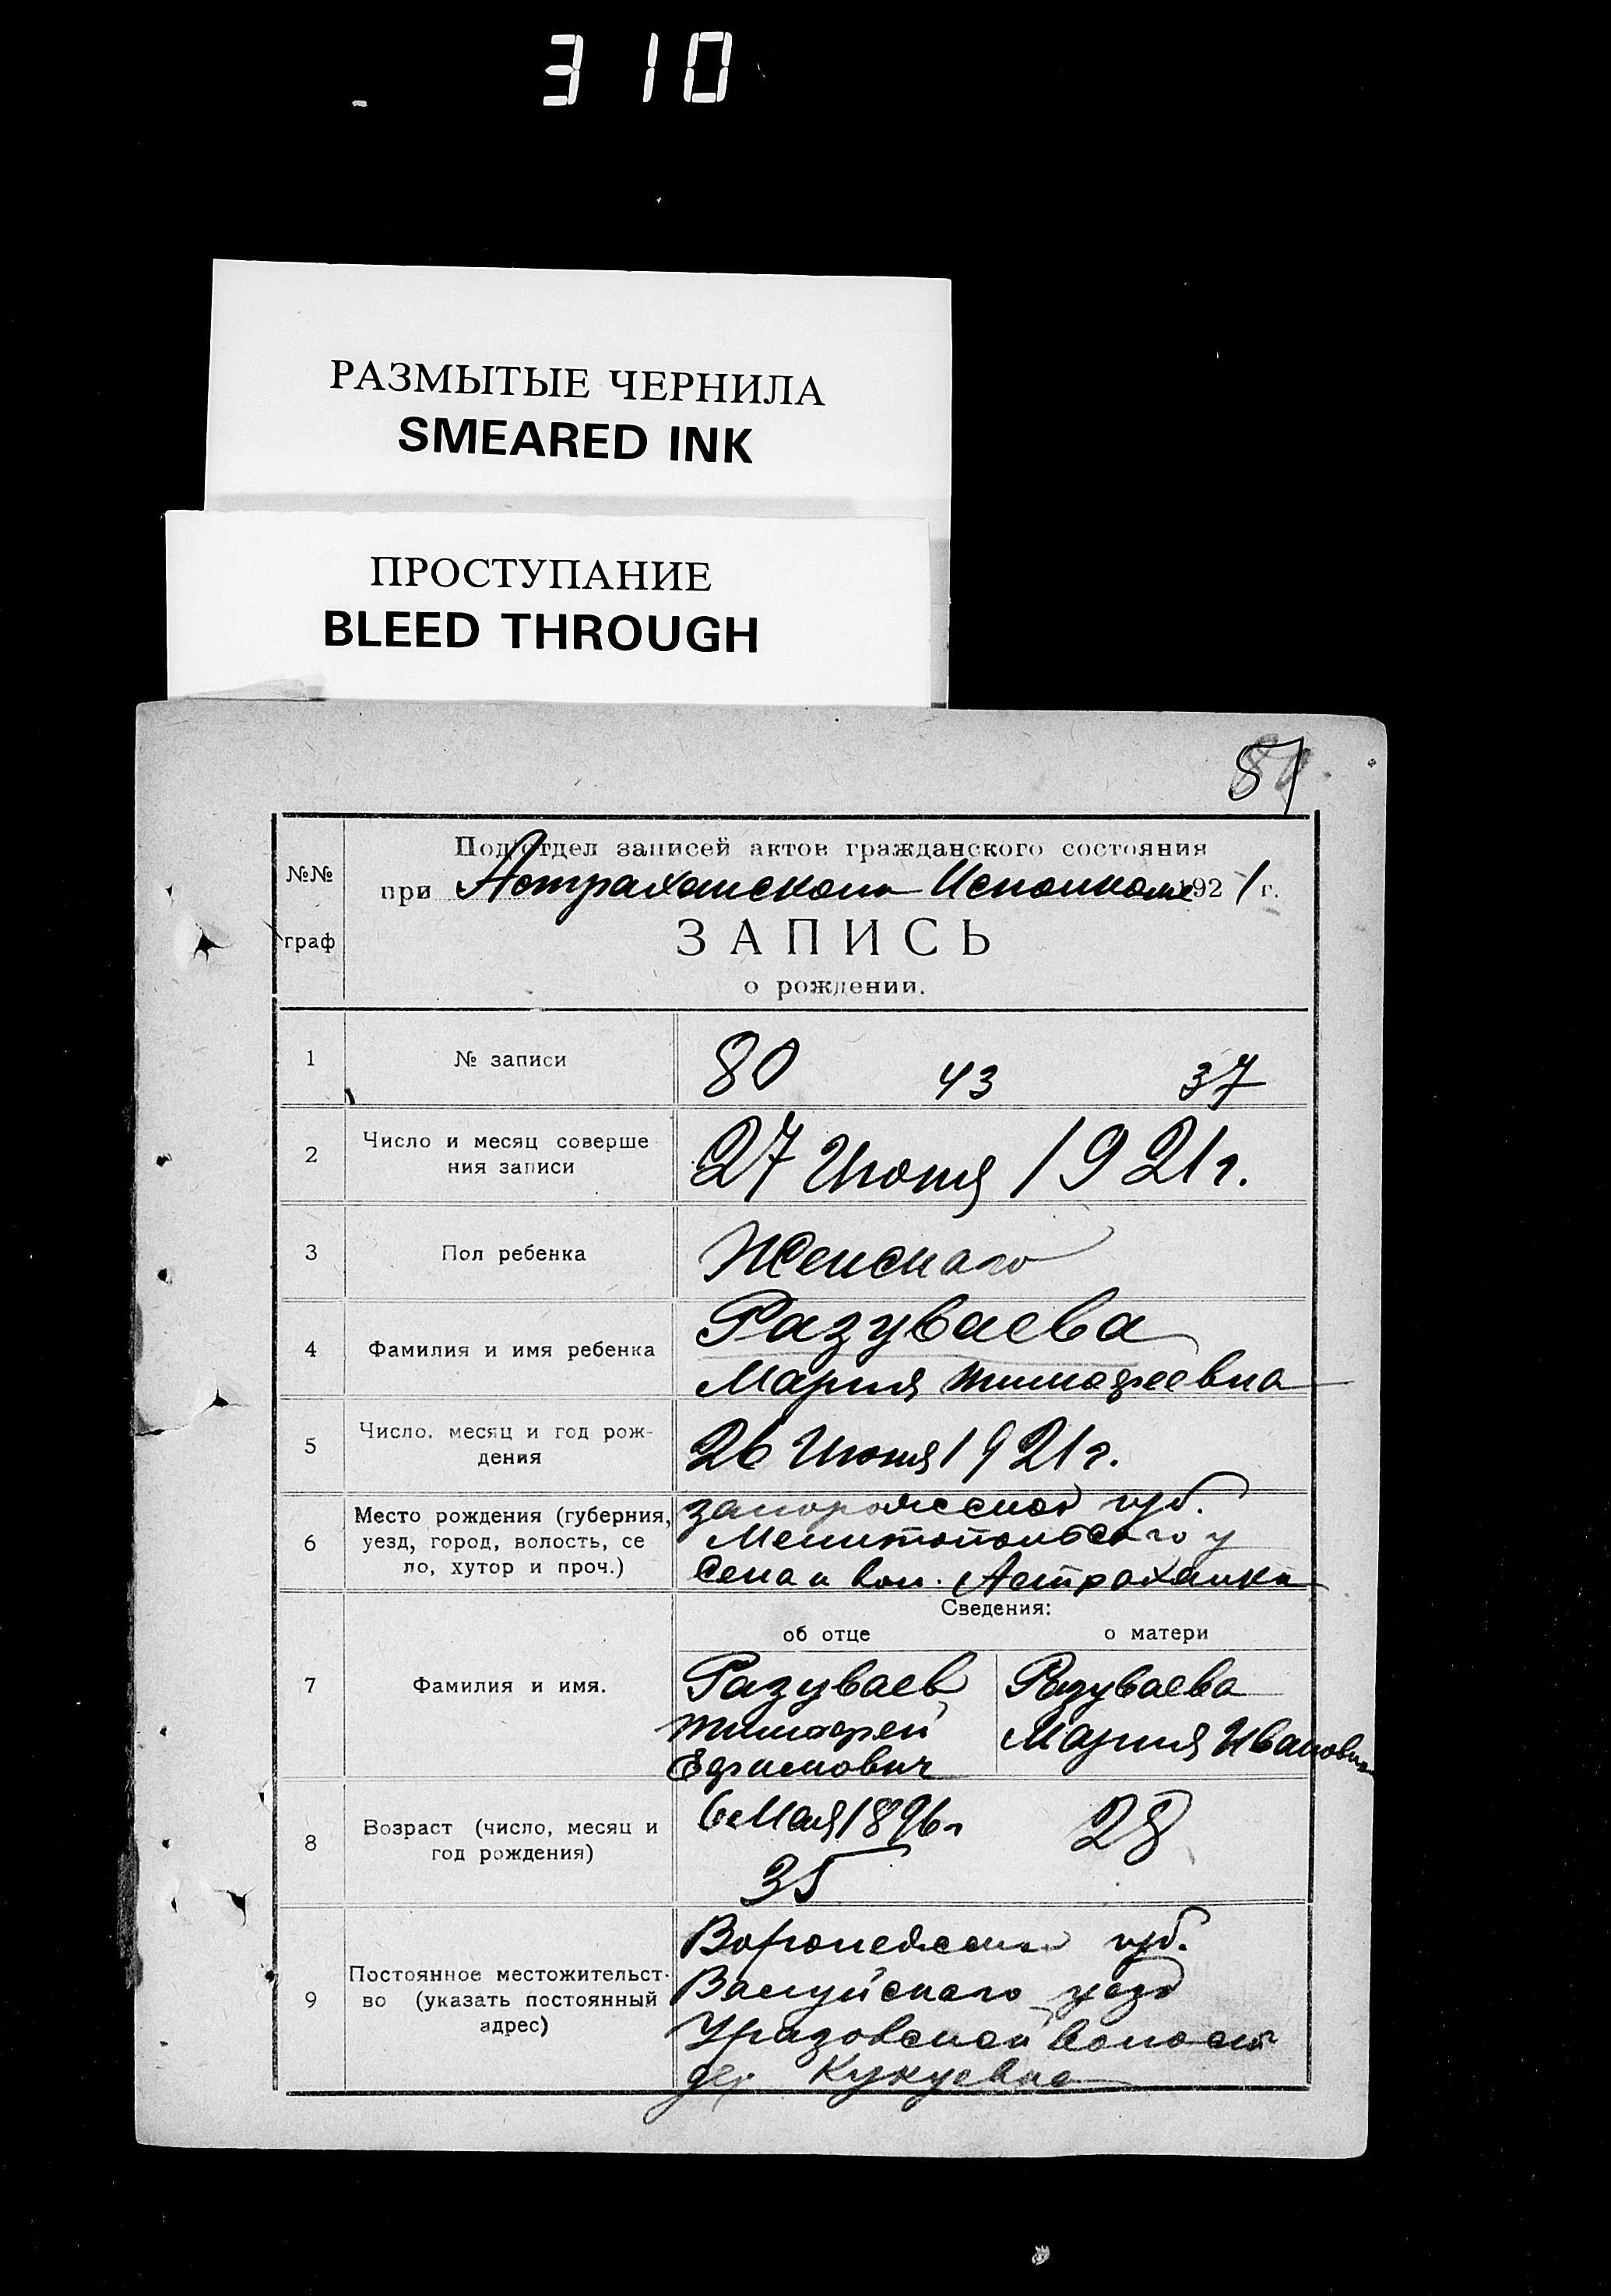 310
РАЗМЫТЫЕ ЧЕРНИЛА
SMEARED INK
ПРОСТУПАНИЕ
BLEED THROUGH
81
№№
граф
Подотдел записей актов гражданского состояния
при Астраханском Исполкоме 1921 г.
ЗАПИСЬ
о рождении.
1 № записи 80 43 37
2 Число и месяц соверше
ния записи
27 Июня 1921 г.
3 Пол ребенка Женскаго
4 Фамилия и имя ребенка
Разуваева
Мария Тимофеевна
5 Число, месяц и год рож-
дения
26 Июня 1921 г.
6 Место рождения (губерния,
уезд, город, волость, се
ло, хутор и проч.)
Запорожской губ.
Мелитопольского у
Села и вол. Астраханка
Сведения:
об отце о матери
7 Фамилия и имя.
Разуваев
Тимофей
Ефимович
Разуваева
Мария Ивановна
8 Возраст (число, месяц и
год рождения)
6 Мая 1896 г
35
28
9 Постоянное местожительст-
во (указать постоянный
адрес)
Воронежской губ.
Валуйскаго уезд
Уразовской волост
дер. Кукуевка